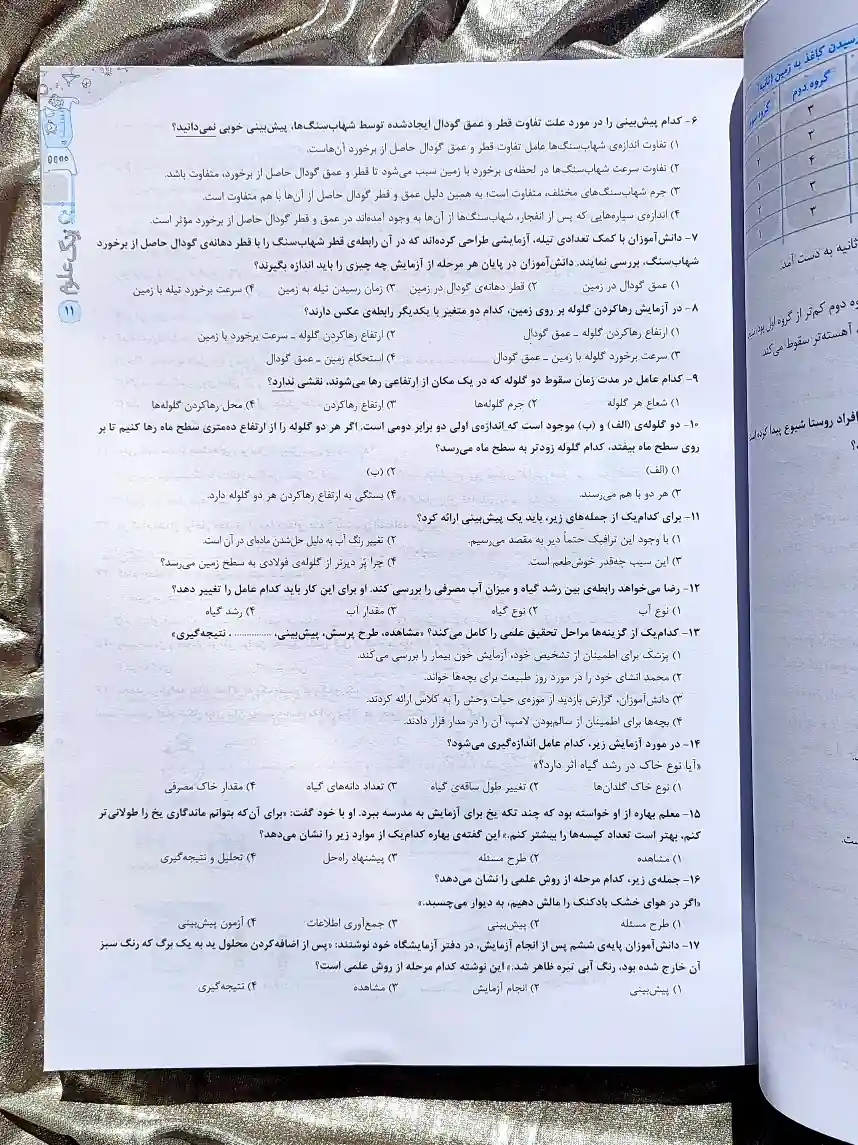 ۶- کدام پیش‌بینی را در مورد علت تفاوت قطر و عمق گودال ایجادشده توسط شهاب‌سنگ‌ها، پیش‌بینی خوبی نمی‌دانید؟
۱) تفاوت اندازه‌ی شهاب‌سنگ‌ها عامل تفاوت قطر و عمق گودال حاصل از برخورد آن‌هاست.
۲) تفاوت سرعت شهاب‌سنگ‌ها در لحظه‌ی برخورد با زمین سبب می‌شود تا قطر و عمق گودال حاصل از برخورد، متفاوت باشد.
۳) جرم شهاب‌سنگ‌های مختلف، متفاوت است؛ به همین دلیل عمق و قطر گودال حاصل از آن‌ها با هم متفاوت است.
۴) اندازه‌ی سیاره‌هایی که پس از انفجار، شهاب‌سنگ‌ها از آن‌ها به وجود آمده‌اند در عمق و قطر گودال حاصل از برخورد مؤثر است.
۷- دانش‌آموزان با کمک تعدادی تیله، آزمایشی طراحی کرده‌اند که در آن رابطه‌ی قطر شهاب‌سنگ را با قطر دهانه‌ی گودال حاصل از برخورد
شهاب‌سنگ، بررسی نمایند. دانش‌آموزان در پایان هر مرحله از آزمایش چه چیزی را باید اندازه بگیرند؟
۱) عمق گودال در زمین ۲) قطر دهانه‌ی گودال در زمین ۳) زمان رسیدن تیله به زمین ۴) سرعت برخورد تیله با زمین
۸- در آزمایش رهاکردن گلوله بر روی زمین، کدام دو متغیر با یکدیگر رابطه‌ی عکس دارند؟
۱) ارتفاع رهاکردن گلوله ـ عمق گودال ۲) ارتفاع رهاکردن گلوله ـ سرعت برخورد با زمین
۳) سرعت برخورد گلوله با زمین ـ عمق گودال ۴) استحکام زمین ـ عمق گودال
۹- کدام عامل در مدت زمان سقوط دو گلوله که در یک مکان از ارتفاعی رها می‌شوند، نقشی ندارد؟
۱) شعاع هر گلوله ۲) جرم گلوله‌ها ۳) ارتفاع رهاکردن ۴) محل رهاکردن گلوله‌ها
۱۰- دو گلوله‌ی (الف) و (ب) موجود است که اندازه‌ی اولی دو برابر دومی است. اگر هر دو گلوله را از ارتفاع ده‌متری سطح ماه رها کنیم تا بر
روی سطح ماه بیفتد، کدام گلوله زودتر به سطح ماه می‌رسد؟
۱) (الف) ۲) (ب)
۳) هر دو با هم می‌رسند. ۴) بستگی به ارتفاع رهاکردن هر دو گلوله دارد.
۱۱- برای کدام‌یک از جمله‌های زیر، باید یک پیش‌بینی ارائه کرد؟
۱) با وجود این ترافیک حتماً دیر به مقصد می‌رسیم. ۲) تغییر رنگ آب به دلیل حل‌شدن ماده‌ای در آن است.
۳) این سیب چه‌قدر خوش‌طعم است. ۴) چرا پَر دیرتر از گلوله‌ی فولادی به سطح زمین می‌رسد؟
۱۲- رضا می‌خواهد رابطه‌ی بین رشد گیاه و میزان آب مصرفی را بررسی کند. او برای این کار باید کدام عامل را تغییر دهد؟
۱) نوع آب ۲) نوع گیاه ۳) مقدار آب ۴) رشد گیاه
۱۳- کدام‌یک از گزینه‌ها مراحل تحقیق علمی را کامل می‌کند؟ «مشاهده، طرح پرسش، پیش‌بینی، ............... ، نتیجه‌گیری»
۱) پزشک برای اطمینان از تشخیص خود، آزمایش خون بیمار را بررسی می‌کند.
۲) محمد انشای خود را در مورد روز طبیعت برای بچه‌ها خواند.
۳) دانش‌آموزان، گزارش بازدید از موزه‌ی حیات وحش را به کلاس ارائه کردند.
۴) بچه‌ها برای اطمینان از سالم‌بودن لامپ، آن را در مدار قرار دادند.
۱۴- در مورد آزمایش زیر، کدام عامل اندازه‌گیری می‌شود؟
«آیا نوع خاک در رشد گیاه اثر دارد؟»
۱) نوع خاک گلدان‌ها ۲) تغییر طول ساقه‌ی گیاه ۳) تعداد دانه‌های گیاه ۴) مقدار خاک مصرفی
۱۵- معلم بهاره از او خواسته بود که چند تکه یخ برای آزمایش به مدرسه ببرد. او با خود گفت: «برای آن‌که بتوانم ماندگاری یخ را طولانی‌تر
کنم، بهتر است تعداد کیسه‌ها را بیشتر کنم.» این گفته‌ی بهاره کدام‌یک از موارد زیر را نشان می‌دهد؟
۱) مشاهده ۲) طرح مسئله ۳) پیشنهاد راه‌حل ۴) تحلیل و نتیجه‌گیری
۱۶- جمله‌ی زیر، کدام مرحله از روش علمی را نشان می‌دهد؟
«اگر در هوای خشک بادکنک را مالش دهیم، به دیوار می‌چسبد.»
۱) طرح مسئله ۲) پیش‌بینی ۳) جمع‌آوری اطلاعات ۴) آزمون پیش‌بینی
۱۷- دانش‌آموزان پایه‌ی ششم پس از انجام آزمایش، در دفتر آزمایشگاه خود نوشتند: «پس از اضافه‌کردن محلول ید به یک برگ که رنگ سبز
آن خارج شده بود، رنگ آبی تیره ظاهر شد.» این نوشته کدام مرحله از روش علمی است؟
۱) پیش‌بینی ۲) انجام آزمایش ۳) مشاهده ۴) نتیجه‌گیری
۱۱
رسیدن کاغذ به زمین (ثانیه)
گروه دوم
۳
۳
۴
۳
۳
ثانیه به دست آمد.
وه دوم کم‌تر از گروه اول بود
آهسته‌تر سقوط می‌کند
افراد روستا شیوع پیدا کرده است